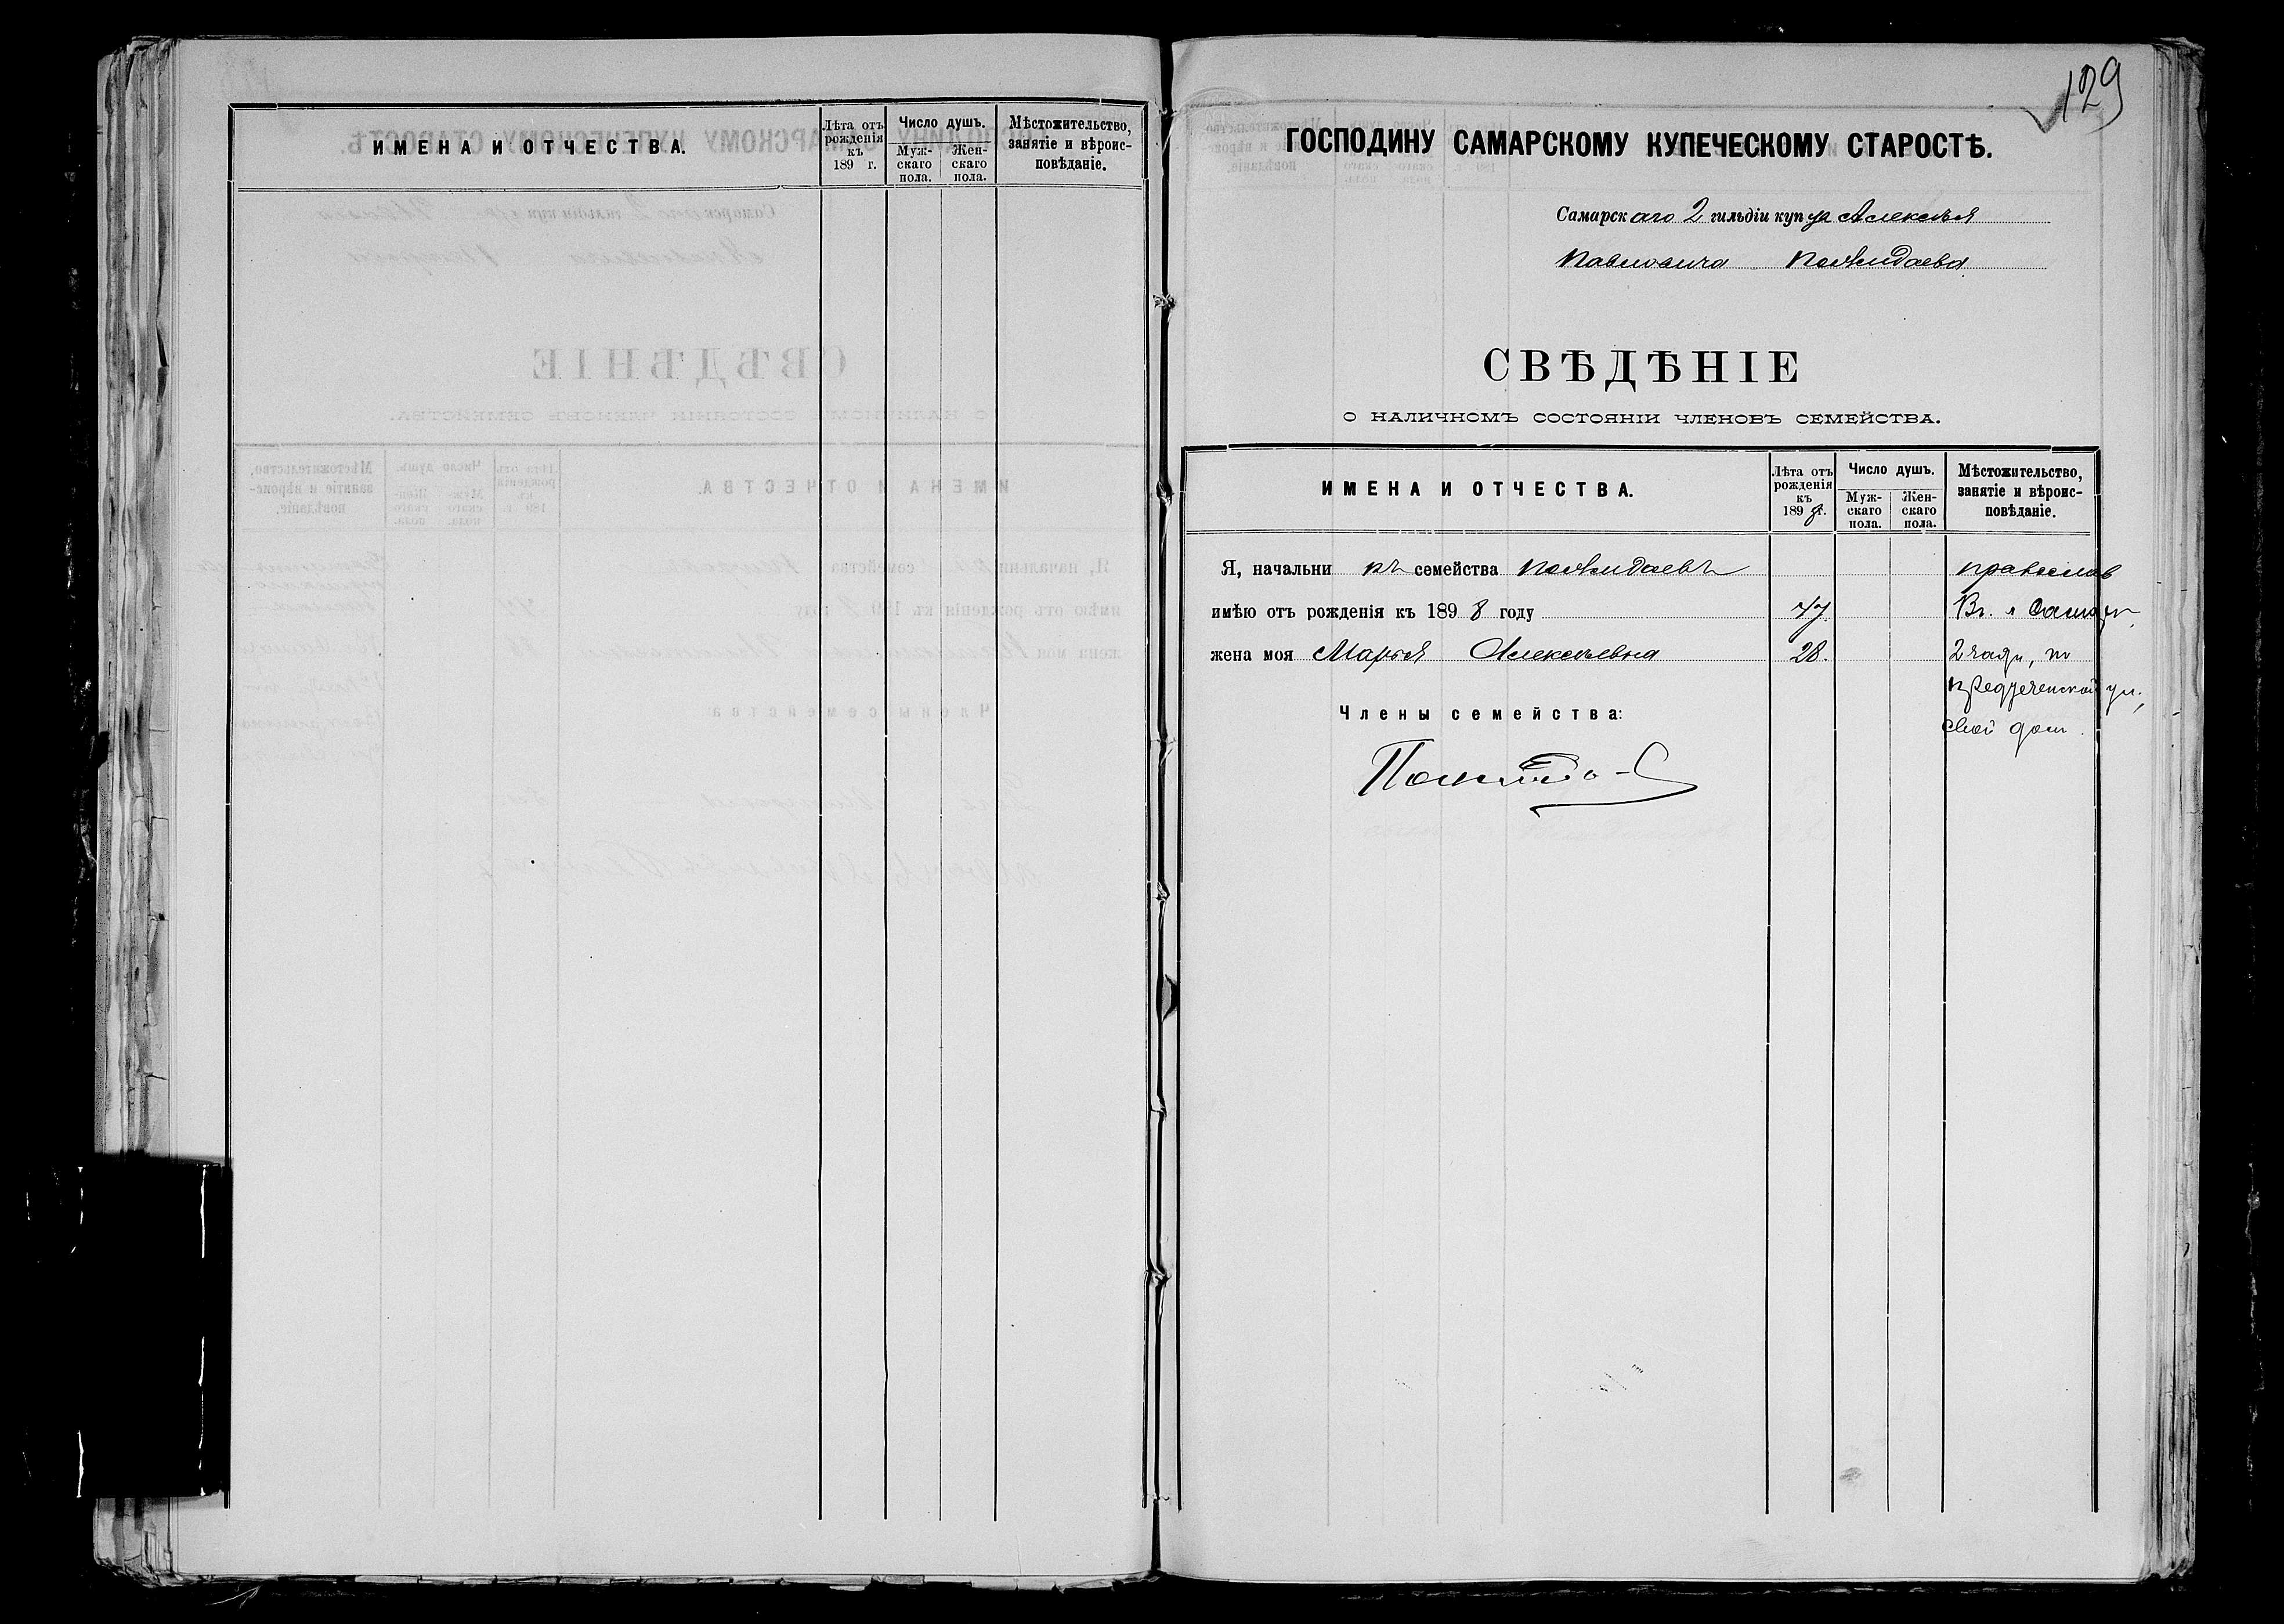 ИМЕНА И ОТЧЕСТВА.
Лѣта отъ рожденія къ 189 г.
Число душъ.
Муж-скаго пола.
Жен-скаго пола.
Мѣстожительство, занятіе и вѣроис-повѣданіе.
129
ГОСПОДИНУ САМАРСКОМУ КУПЕЧЕСКОМУ СТАРОСТѢ.
Самарскаго 2 гильдіи купца Алексѣя
Павловича
СВѢДѢНІЕ
О НАЛИЧНОМЪ СОСТОЯНІИ ЧЛЕНОВЪ СЕМЕЙСТВА.
ИМЕНА И ОТЧЕСТВА.
Лѣта отъ рожденія къ 1898 г.
Число душъ.
Муж-скаго пола.
Жен-скаго пола.
Мѣстожительство, занятіе и вѣроис-повѣданіе.
Я, начальникъ семейства православ
имѣю отъ рожденія къ 1898 году 47. Въ г Самарѣ,
жена моя Марья Алексѣевна 28. 2 части, по
ул.,
Члены семейства:
свой дом.